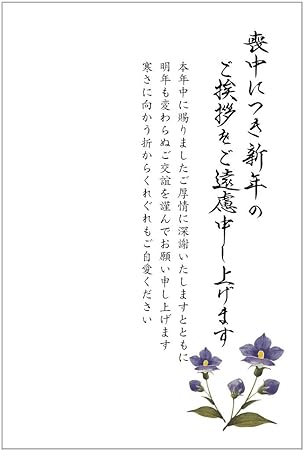 喪中につき新年の
ご挨拶をご遠慮申し上げます
本年中に賜りましたご厚情に深謝いたしますとともに
明年も変わらぬご交誼を謹んでお願い申し上げます
寒さに向かう折からくれぐれもご自愛ください